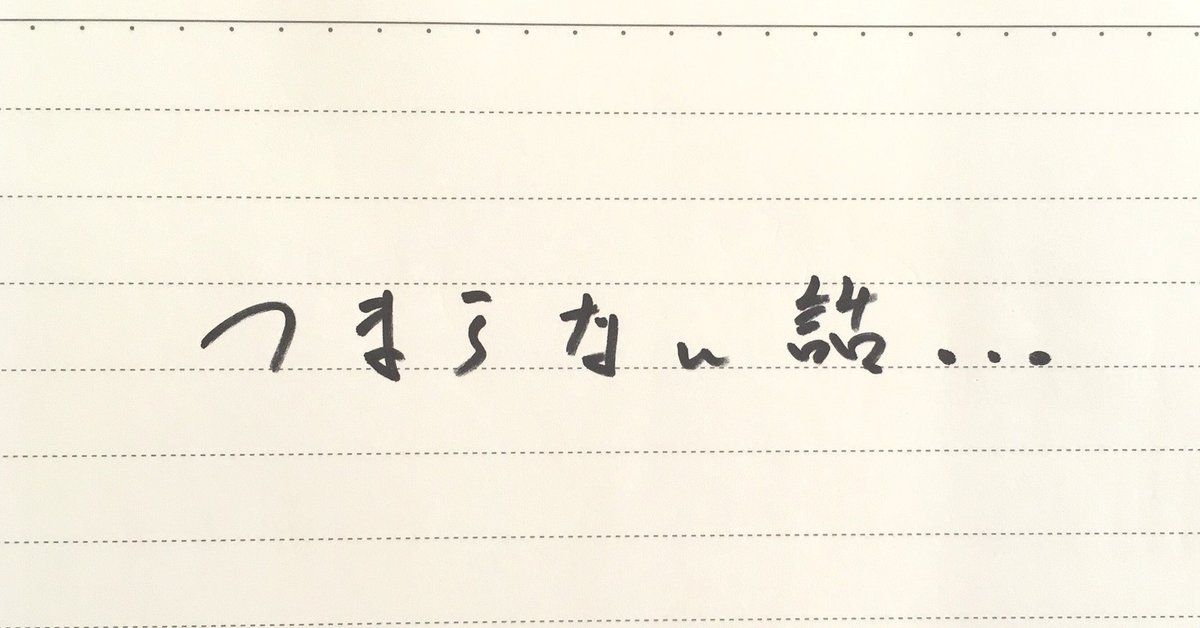 つまらない話...